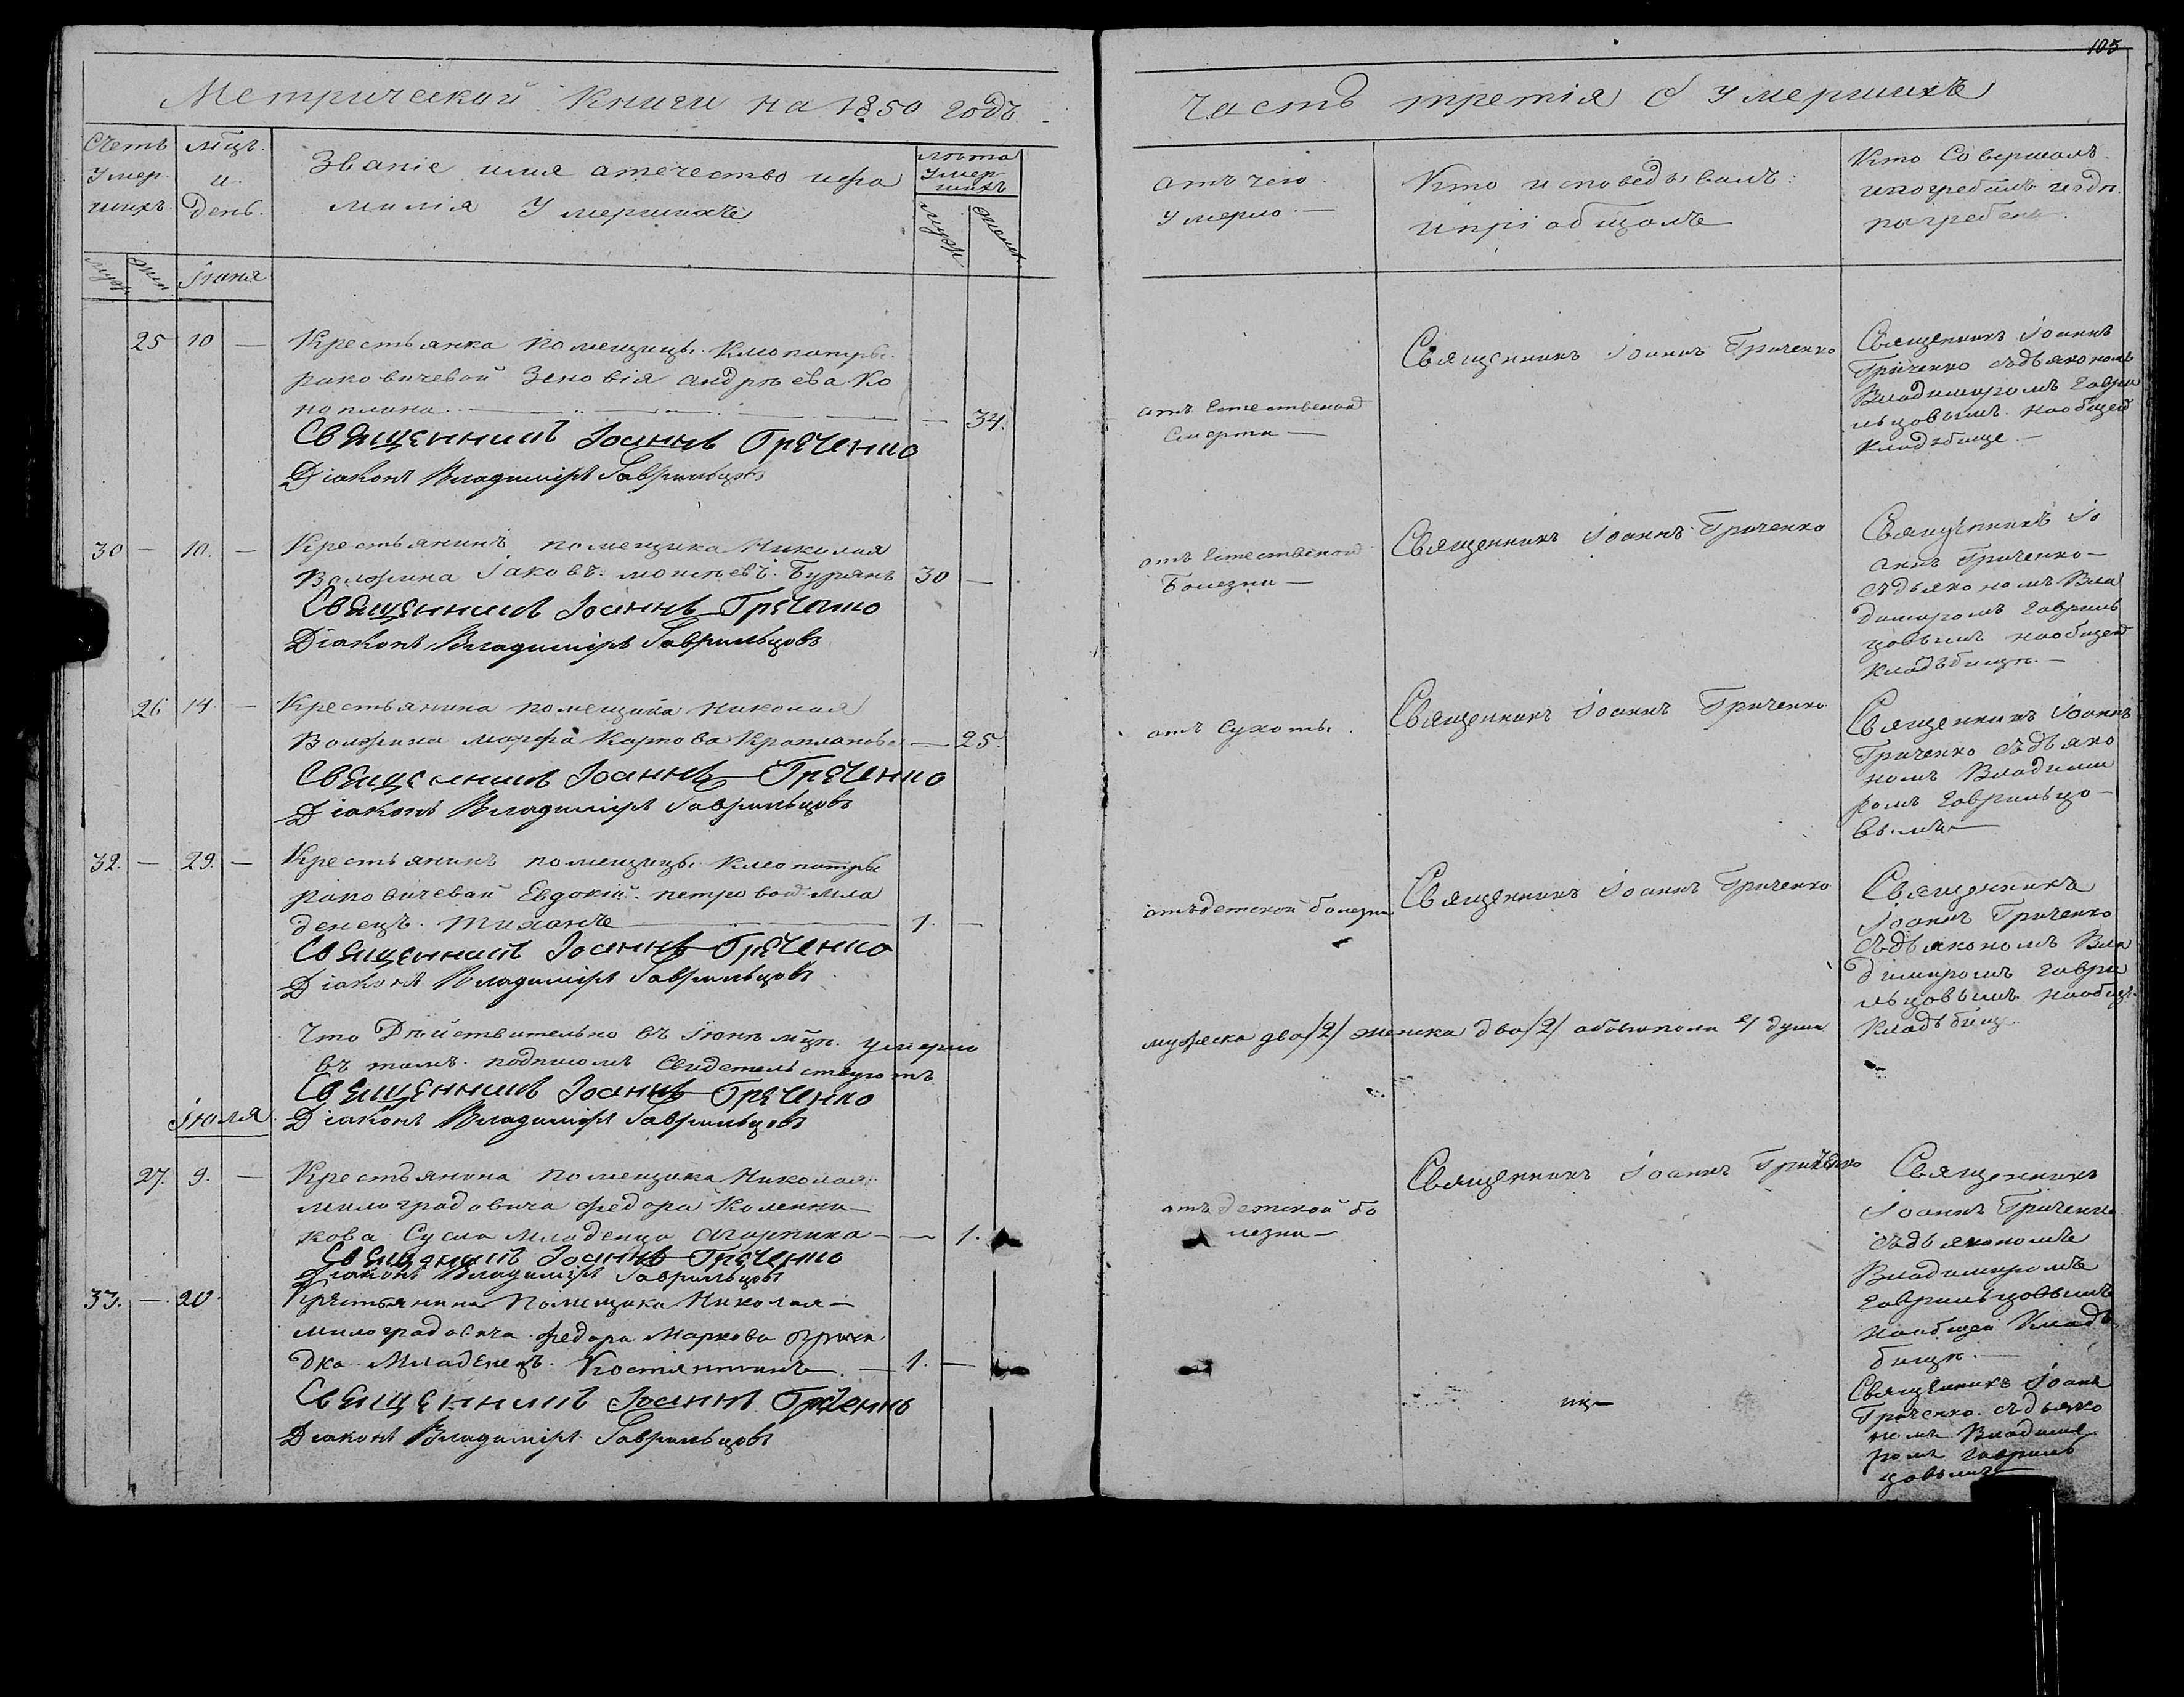 105
Метрической Книги на 1850 годъ
Часть третія О Умершихъ
Счетъ
Умер
шихъ.
мцъ.
и
день.
Званіе имя атечество ифа
милія Умершихъ
лѣта
Умер
шихъ
муж
женс
муж
жен
Іюня
атъ чего
Умерло. —
Кто исповедывалъ:
Ипріобщалъ
Кто Совершалъ
ипогребалъ игдѣ
погребены
25 10 — Крестьянка Помещицы Клеопатры
раковичевой Зеновія андрѣева Ко
поплина — 34.
Священникъ Іоаннъ Греченко
Діаконъ Владиміръ Гаврильцовъ
атъ Естественной
Смерти —
Священникъ Іоаннъ Гриченко
Священникъ Іоаннъ
Гриченко съдьякономъ
Владимиромъ Гаври
льцовымъ наобщей
Кладбище —
30 — 10. — Крестьянинъ помещика Николая
Волжина Іаковъ моисѣевъ Бурянъ 30 —
Священникъ Іоаннъ Греченко
Діаконъ Владиміръ Гаврильцовъ
атъ Естественой
Болезни —
Священникъ Іоаннъ Гриченко
Священникъ Іо
аннъ Гриченко —
съдьякономъ Вла
димиромъ Гавриль
цовымъ наобщей
Кладьбищѣ. —
26 14. — Крестьянина помещика Николая
Волжина марфа Карпова Крапланова — 25.
Священникъ Іоаннъ Греченко
Діаконъ Владиміръ Гаврильцовъ
атъ Сухоты.
Священникъ Іоаннъ Гриченко
Священникъ Іоаннъ
Гриченко съдьяко
номъ Владими
ромъ Гаврильцо —
вымъ —
32. — 29. — Крестьянинъ помещицы Клеопатры
раковичевай Евдокій петровой Мла
денецъ Тиханъ — 1. —
Священникъ Іоаннъ Греченко
Діаконъ Владиміръ Гаврильцовъ
атъдетской болезни
Священникъ Іоаннъ Гриченко
Священникъ
Іоаннъ Гриченко
съдьякономъ Вла
димиромъ Гаври
льцовымъ наобщ.
Кладьбищ
Что Дѣйствительно въ Іюнѣ мцѣ. умерло
въ томъ подписомъ Свидетельствуютъ
мужеска два /2/ женска два /2/ абоегопола 4/ души
Священникъ Іоаннъ Греченко
Діаконъ Владиміръ Гаврильцовъ
Іюля
27. 9. — Крестьянина Помещика Николая
милоградовича федора Коленни —
кова Сусла Младенца Агарпина — — 1.
Священникъ Іоаннъ Греченко
Діаконъ Владиміръ Гаврильцовъ
атъ детской бо
лезни —
Священникъ Іоаннъ Гриченко
Священникъ
Іоаннъ Гриченко
съдьякономъ
Владимиромъ
Гаврильцовымъ
наобщей Кладь
бищѣ. —
33. — 20 Крестьянина Помещика Николая —
милоградовича федора Маркова
дка Младенецъ Костянтинъ. — 1. —
Священникъ Іоаннъ Греченко
Діаконъ Владиміръ Гаврильцовъ
Священникъ Іоанн
Гриченко съдьяко
номъ Владими
ромъ Гавриль
цовымъ